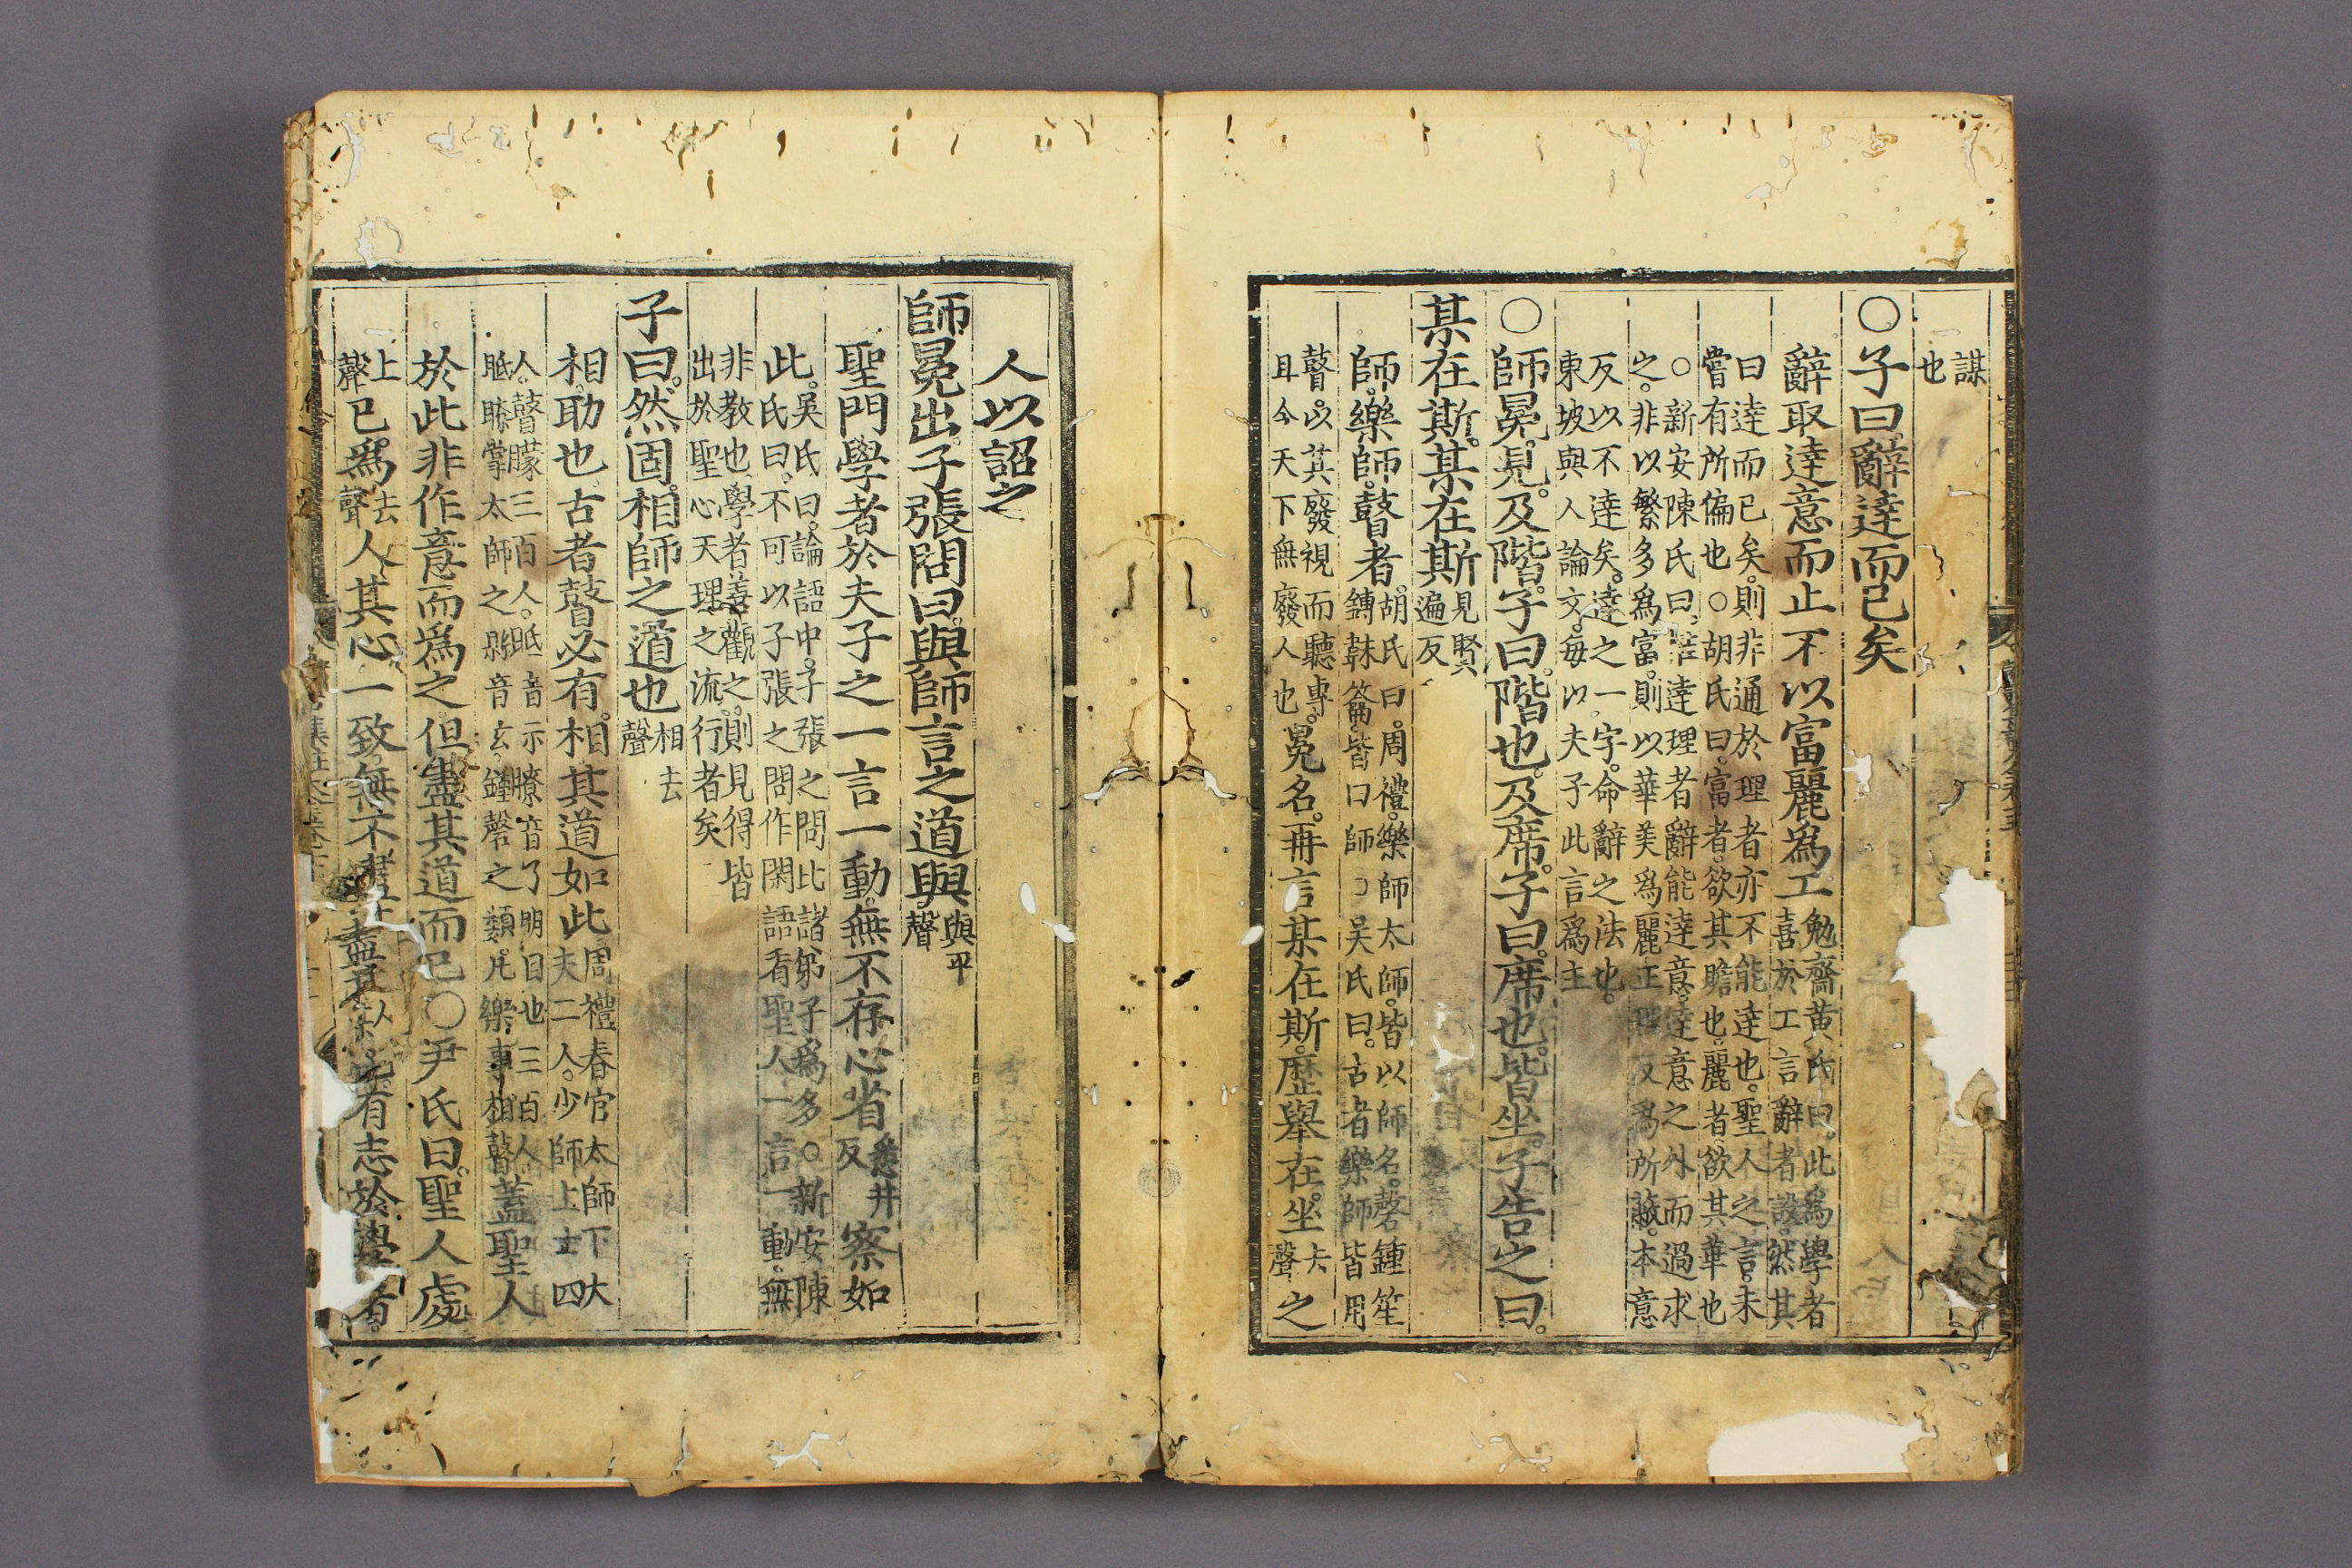 謀
也
○子曰辭達而已矣
辭取達意而止不以富麗爲工
勉齋黃氏曰此爲學者
喜於工言辭者設然其
曰達而已矣則非通於理者亦不能達也聖人之言未
嘗有所偏也○胡氏曰富者欲其贍也麗者欲其華也
○新安陳氏曰達理者辭能達意達意之外而過求
之非以繁多爲富則以華美爲麗正反爲所蔽本意
反以不達矣達之一字命辭之法也
東坡與人論文每以夫子此言爲主
○師冕見及階子曰階也及席子曰席也皆坐子告之曰
某在斯某在斯
見賢
遍反
師樂師瞽者
胡氏曰周禮樂師太師皆以師名磬鍾笙
鎛韎籥皆曰師○吳氏曰古者樂師皆用
瞽以其廢視而聽專
且今天下無廢人也
冕名再言某在斯歷舉在坐
去
聲
之
人以詔之
師冕出子張問曰與師言之道與
與平
聲
聖門學者於夫子之一言一動無不存心省
悉井
反
察如
此
吳氏曰論語中子張之問比諸弟子爲多○新安陳
氏曰不可以子張之問作閑語看聖人一言一動無
非教也學者善觀之則見得皆
出於聖心天理之流行者矣
子曰然固相師之道也
相去
聲
相助也古者瞽必有相其道如此
周禮春官太師下大
夫二人少師上士四
人瞽矇三百人眡音示瞭音了明目也三百人
眡瞭掌太師之縣音玄鐘磬之類凡樂事相瞽
蓋聖人
於此非作意而爲之但盡其道而已○尹氏曰聖人處
上
聲
已爲
去
聲
人其心一致無不盡
有志於學者